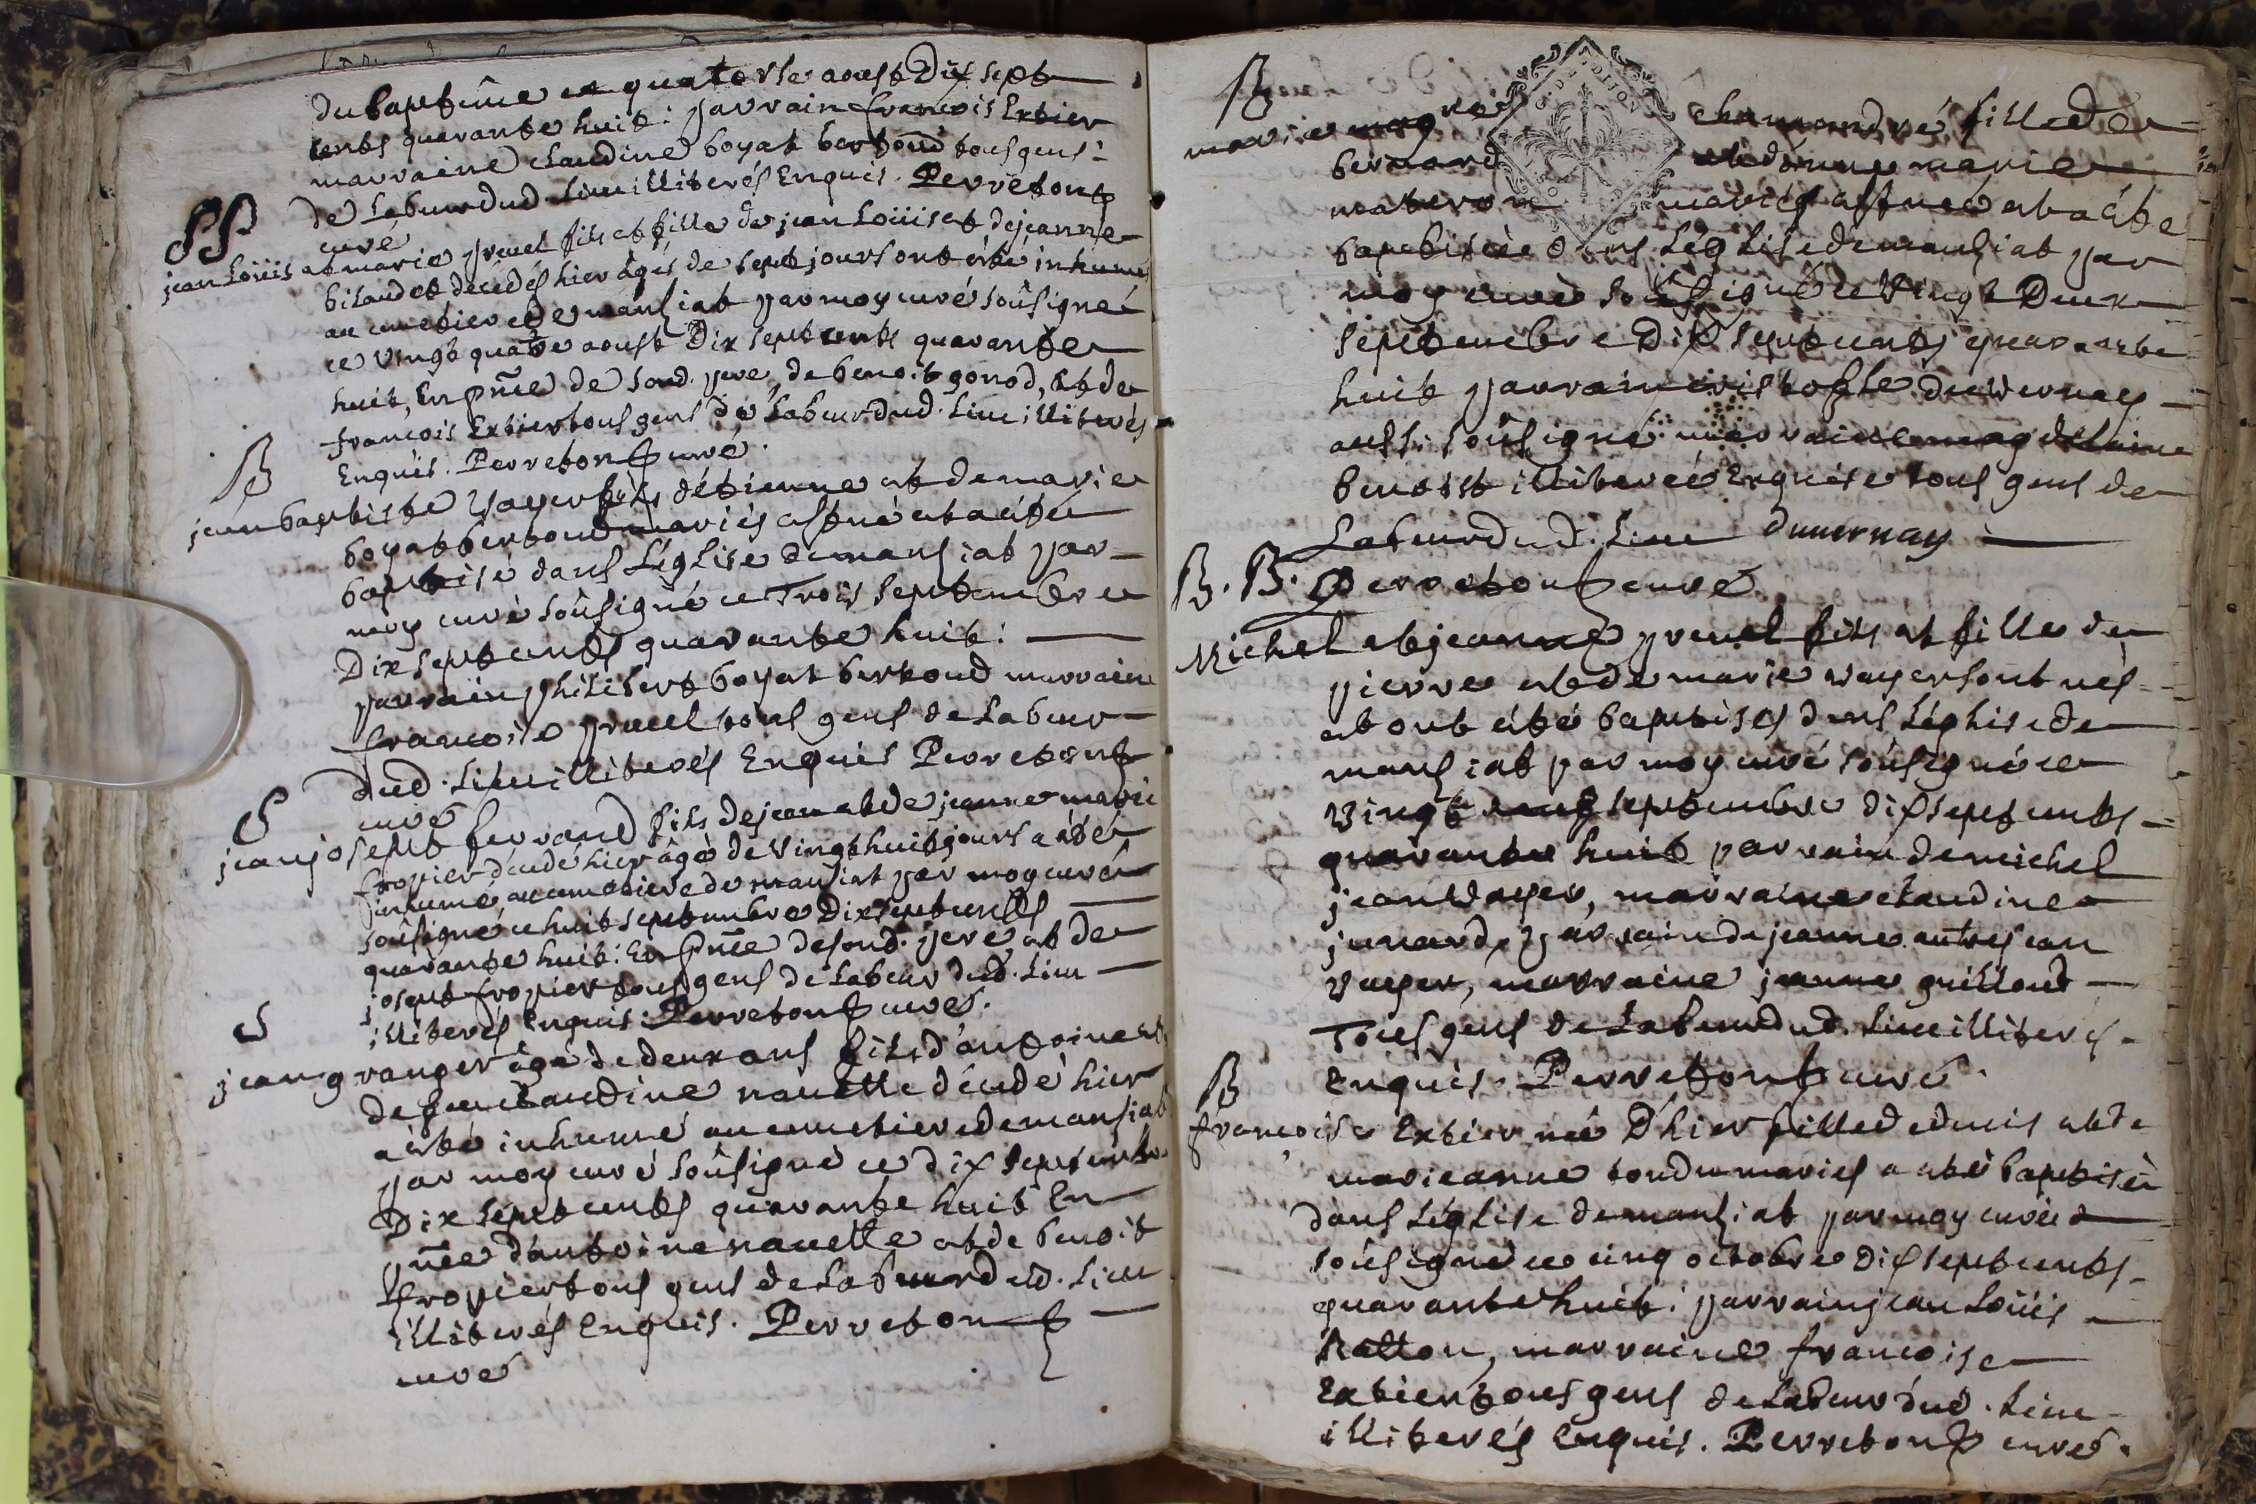 du baptême ce quatorse aoust Dix sept
cents quarante huit: parrain francois Extier
marraine claudine boyat bertoud tous gens
de Labeur dud. Lieu illiterés Enquis. Perreton
curé
SS
jean Loüis et marie pruel fils et fille de jean Loüis et de jeanne
bitaudet décédés hier âgés de sept jours ont été inhumés
au cimetiere de mansiat par moy curé soûsigné
ce vingt quatre aoust Dix sept cents quarante
huit, En pñce de soud. pere, de benoit gonod, et de
francois Extier tous gens de Labeur dud. Lieu illiterés
Enquis. Perreton curé.
B
jean baptiste vayer fils d'étienne et de marie
boyat bertoud mariés est né et a été
baptisé dans L'église de mansiat par
moy curé soûsigné ce Trois septembre
Dix sept cents quarante huit:
parrain philibert boyat bertoud marraine
francoise pruel tous gens de Labeur
dud. Lieu illiterés Enquis Perreton
curé
S
jean josept ferrand fils de jean et de jeanne marie
fropier décédé hier âgé de vingt huit jours a été
inhumé au cimetiere de mansiat par moy curé
soûsigné ce huit septembre Dix sept cents
quarante huit: En pñce de soud. pere et de
josept fropier tous gens de Labeur dud. Lieu
illiterés Enquis. Perreton curé.
S
jean granger âgé de deux ans fils d'antoine et
de feue claudine nauette décédé hier
a été inhumé au cimetiere de mansiat
par moy curé soûsigné ce dix septembre
Dix sept cents quarante huit En
pñce d'antoine nauette et de benoit
fropier tous gens de Labeur dud. Lieu
illiterés Enquis. Perreton
curé
B
marie chamandré fille de
bernard et d'anne marie
materon mariés est née et a été
baptisée dans L'église de mansiat par
moy curé soûsigné ce vingt Deux
septembre Dix sept cents quarante
huit parrain cristofle duvernay
aussi soûsigné marraine magdelaine
benoist illiterée Enquise tous gens de
Labeur dud. Lieu duuernay
Perreton curé
B. B.
Michel et jeanne pruel fils et fille de
pierre et de marie vayer sont nés
et ont été baptisés dans L'église de
mansiat par moy curé soûsigné ce
vingt neuf septembre dix sept cents
quarante huit parrain de michel
jean vayer, marraine claudine
junard, parrain de jeanne autre jean
vayer, marraine jeanne guillout
Tous gens de Labeur dud. Lieu illiterés
Enquis. Perreton curé.
B
francoise Extier née D'hier fille de denis et de
marie anne tondu mariés a été baptisée
dans L'église de mansiat par moy curé
soûsigné ce cinq octobre Dix sept cents
quarante huit: parrain jean Loüis
Ratton, marraine francoise
Extier tous gens de Labeur dud. Lieu
illiterés Enquis. Perreton curé.